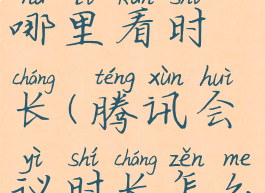 nǎ lǐ kàn shí
哪里看时
cháng téng xùn huì
长(腾讯会
yì shí cháng zěn me
议时长怎么